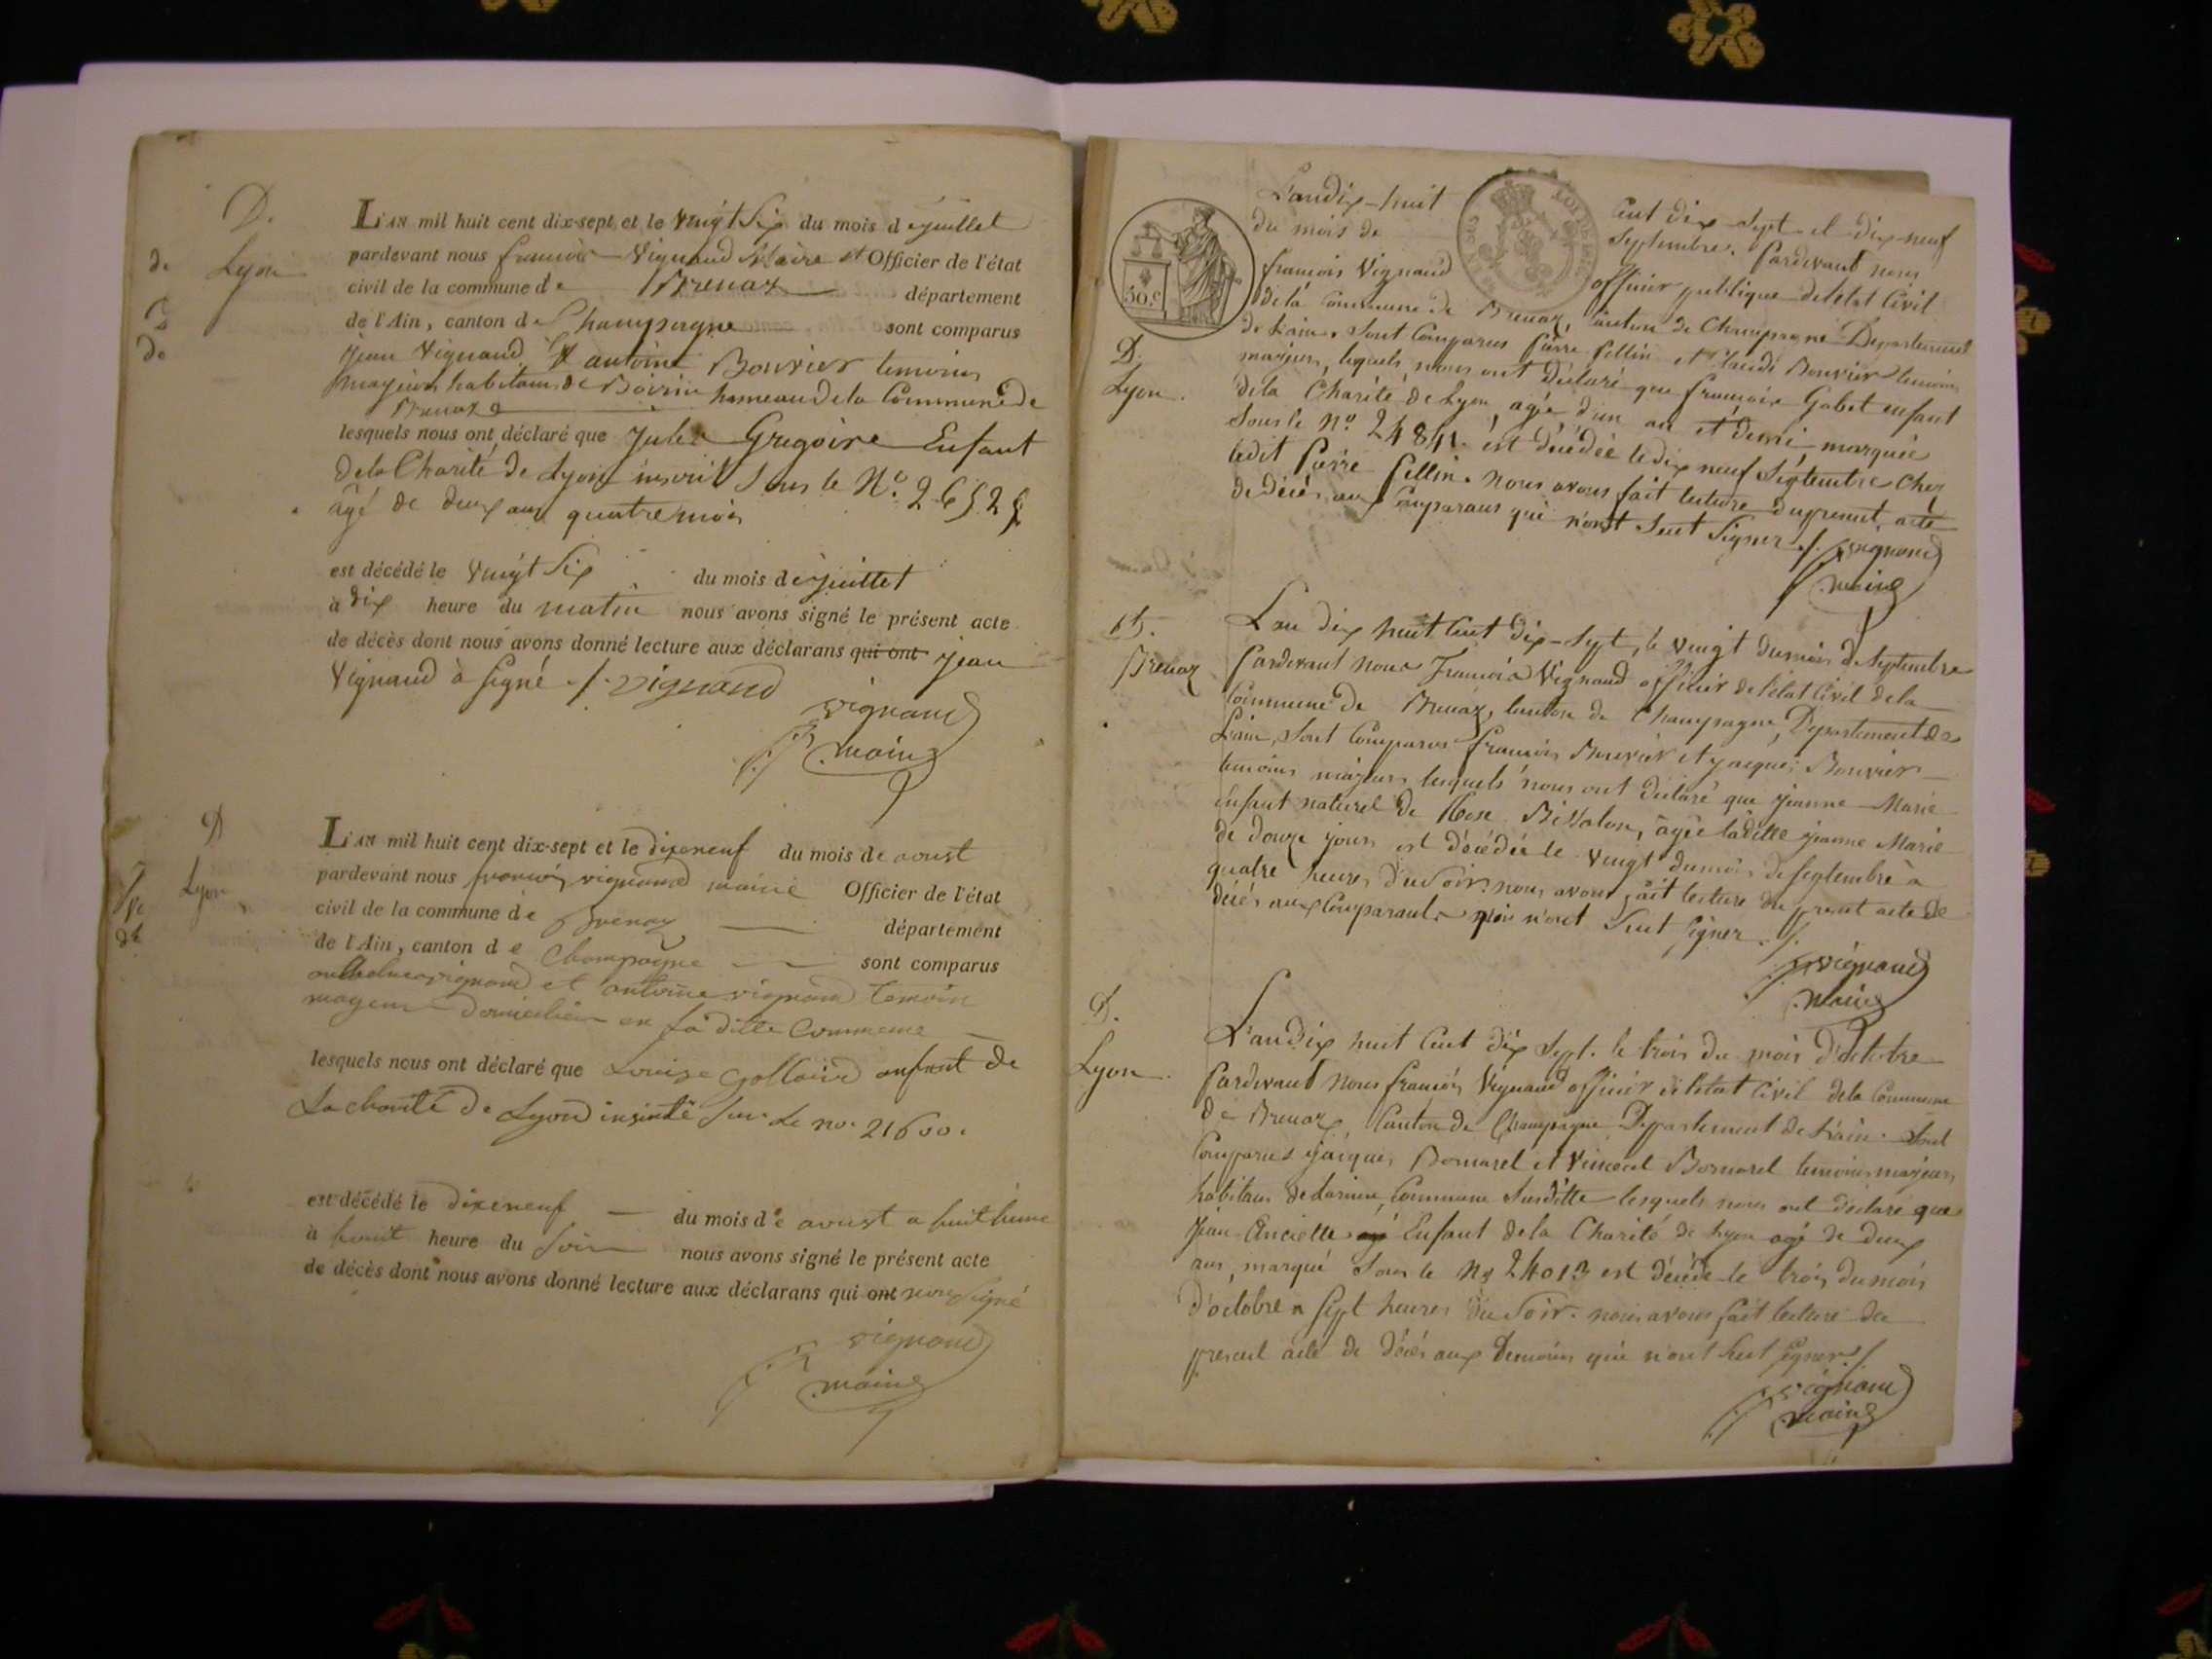 D.
de Lyon
L'AN mil huit cent dix-sept, et le vingt Six du mois de juillet
pardevant nous francois Vignaud Maire et Officier de l'état
civil de la commune de Brenaz département
de l'Ain, canton de Champagne sont comparus
jean Vignaud & antoine Bouvier temoins
majeurs habitans de hameau de la Commune de
Brenaz
lesquels nous ont déclaré que Jules Gregoire Enfant
de la Charité de Lyon inscrit Sous le N.º 2652
âgé de deux ans quatre mois
est décédé le vingt Six du mois de juillet
à dix heure du matin nous avons signé le présent acte
de décès dont nous avons donné lecture aux déclarans qui ont jean
Vignaud à signé ./. vignaud
vignaud
maire
D
Lyon
L'AN mil huit cent dix-sept et le dixeneuf du mois de aoust
pardevant nous francois vignaud maire Officier de l'état
civil de la commune de Brenaz département
de l'Ain, canton de Champagne sont comparus
vignaud et antoine vignaud temoin
mageur domicilier en la ditte Commune
lesquels nous ont déclaré que Louise Gollaird anfant de
La charité de Lyon sur Le no. 21600.
est décédé le dixeneuf du mois de aoust a huit heure
à huit heure du soir nous avons signé le présent acte
de décès dont nous avons donné lecture aux déclarans qui ont non signé
vignaud
maire
50.c
D.
Lyon.
L'an dix-huit Cent dix Sept et dix-neuf
du mois de Septembre. Pardevant nous
francois Vignaud officier publique de l'état Civil
de la Commune de Brenaz, Canton de Champagne Departement
de L'ain. Sont Comparus Pierre Pellin et Claude Bouvier temoins
majeurs, lequels nous ont déclaré que francoise Gabet enfant
de la Charité de Lyon, agée d'un an et demi, marquée
Sous le Nº 24841. est décédée le dix neuf Septembre Chez
ledit Pierre Pellin. Nous avons fait lecture du present acte
de décès aux Comparans qui n'ont Seut Signer ./. vignaud
maire
D.
Brenaz
L'an dix huit Cent dix-Sept, le vingt du mois de Septembre
Pardevant nous Francois Vignaud officier de l'état Civil de la
Commune de Brenaz, Canton de Champagne, Departement de
L'ain, Sont Comparus francois Bouvier et jaques Bouvier
temoins majeurs lesquels nous ont déclaré que jeanne Marie
Enfant naturel de Rose Bissalon, âgée ladite jeanne Marie
de douze jours est décédée le vingt du mois de Septembre à
quatre heures du Soir. nous avons fait lecture du présent acte de
décès aux Comparants qui n'ont Seut Signer ./.
vignaud
maire
D.
Lyon.
L'an dix huit Cent dix Sept. le trois du mois d'octobre
Pardevant nous francois Vignaud officier de l'état Civil de la Commune
de Brenaz, Canton de Champagne Departement de L'ain. Sont
Comparus jaques Bornarel et Vincent Bornarel temoins majeurs
habitans Commune Susditte lesquels nous ont déclaré que
Jean Ancielle Enfant de la Charité de Lyon agé de deux
ans, marqué Sous le Nº 24013 est décédé le trois du mois
d'octobre a Sept heures du Soir. nous avons fait lecture du
present acte de décès aux temoins qui n'ont Seut Signer ./.
vignaud
maire